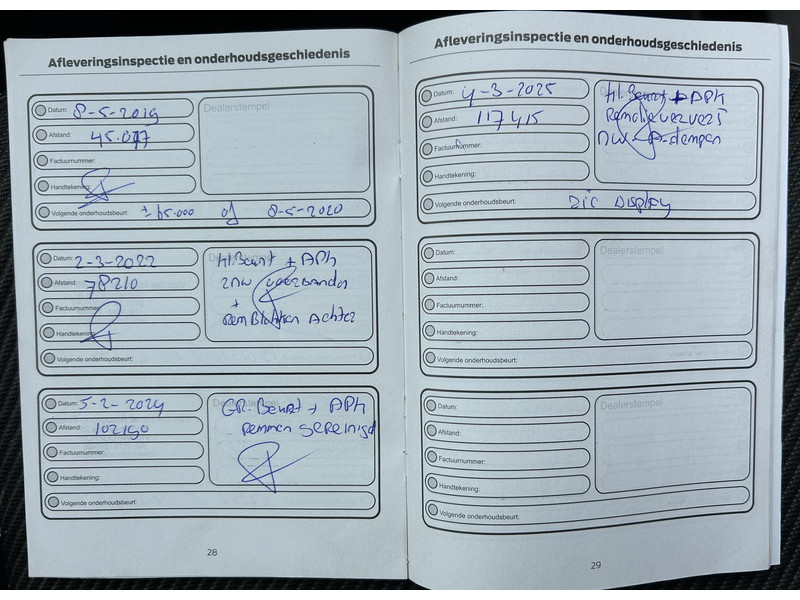 Afleveringsinspectie en onderhoudsgeschiedenis
Datum: 8-5-2019
Dealerstempel
Afstand: 45.077
Factuurnummer:
Handtekening:
Volgende onderhoudsbeurt: ± 65.000 of 8-5-2020
Datum: 2-3-2022
Kl. Beurt + APk
Afstand: 78210
2 nw voorbanden
+
Factuurnummer:
RemBlokken Achter
Handtekening:
Volgende onderhoudsbeurt:
Datum: 5-2-2024
GR. Beurt + APk
Afstand: 102190
Remmen gereinigd
Factuurnummer:
Handtekening:
Volgende onderhoudsbeurt:
28
Afleveringsinspectie en onderhoudsgeschiedenis
Datum: 4-3-2025
Kl. Beurt + APk
Afstand: 117415
Remolie ververst
Factuurnummer:
nw A-dempers
Handtekening:
Volgende onderhoudsbeurt: zie Display
Datum:
Dealerstempel
Afstand:
Factuurnummer:
Handtekening:
Volgende onderhoudsbeurt:
Datum:
Dealerstempel
Afstand:
Factuurnummer:
Handtekening:
Volgende onderhoudsbeurt:
29